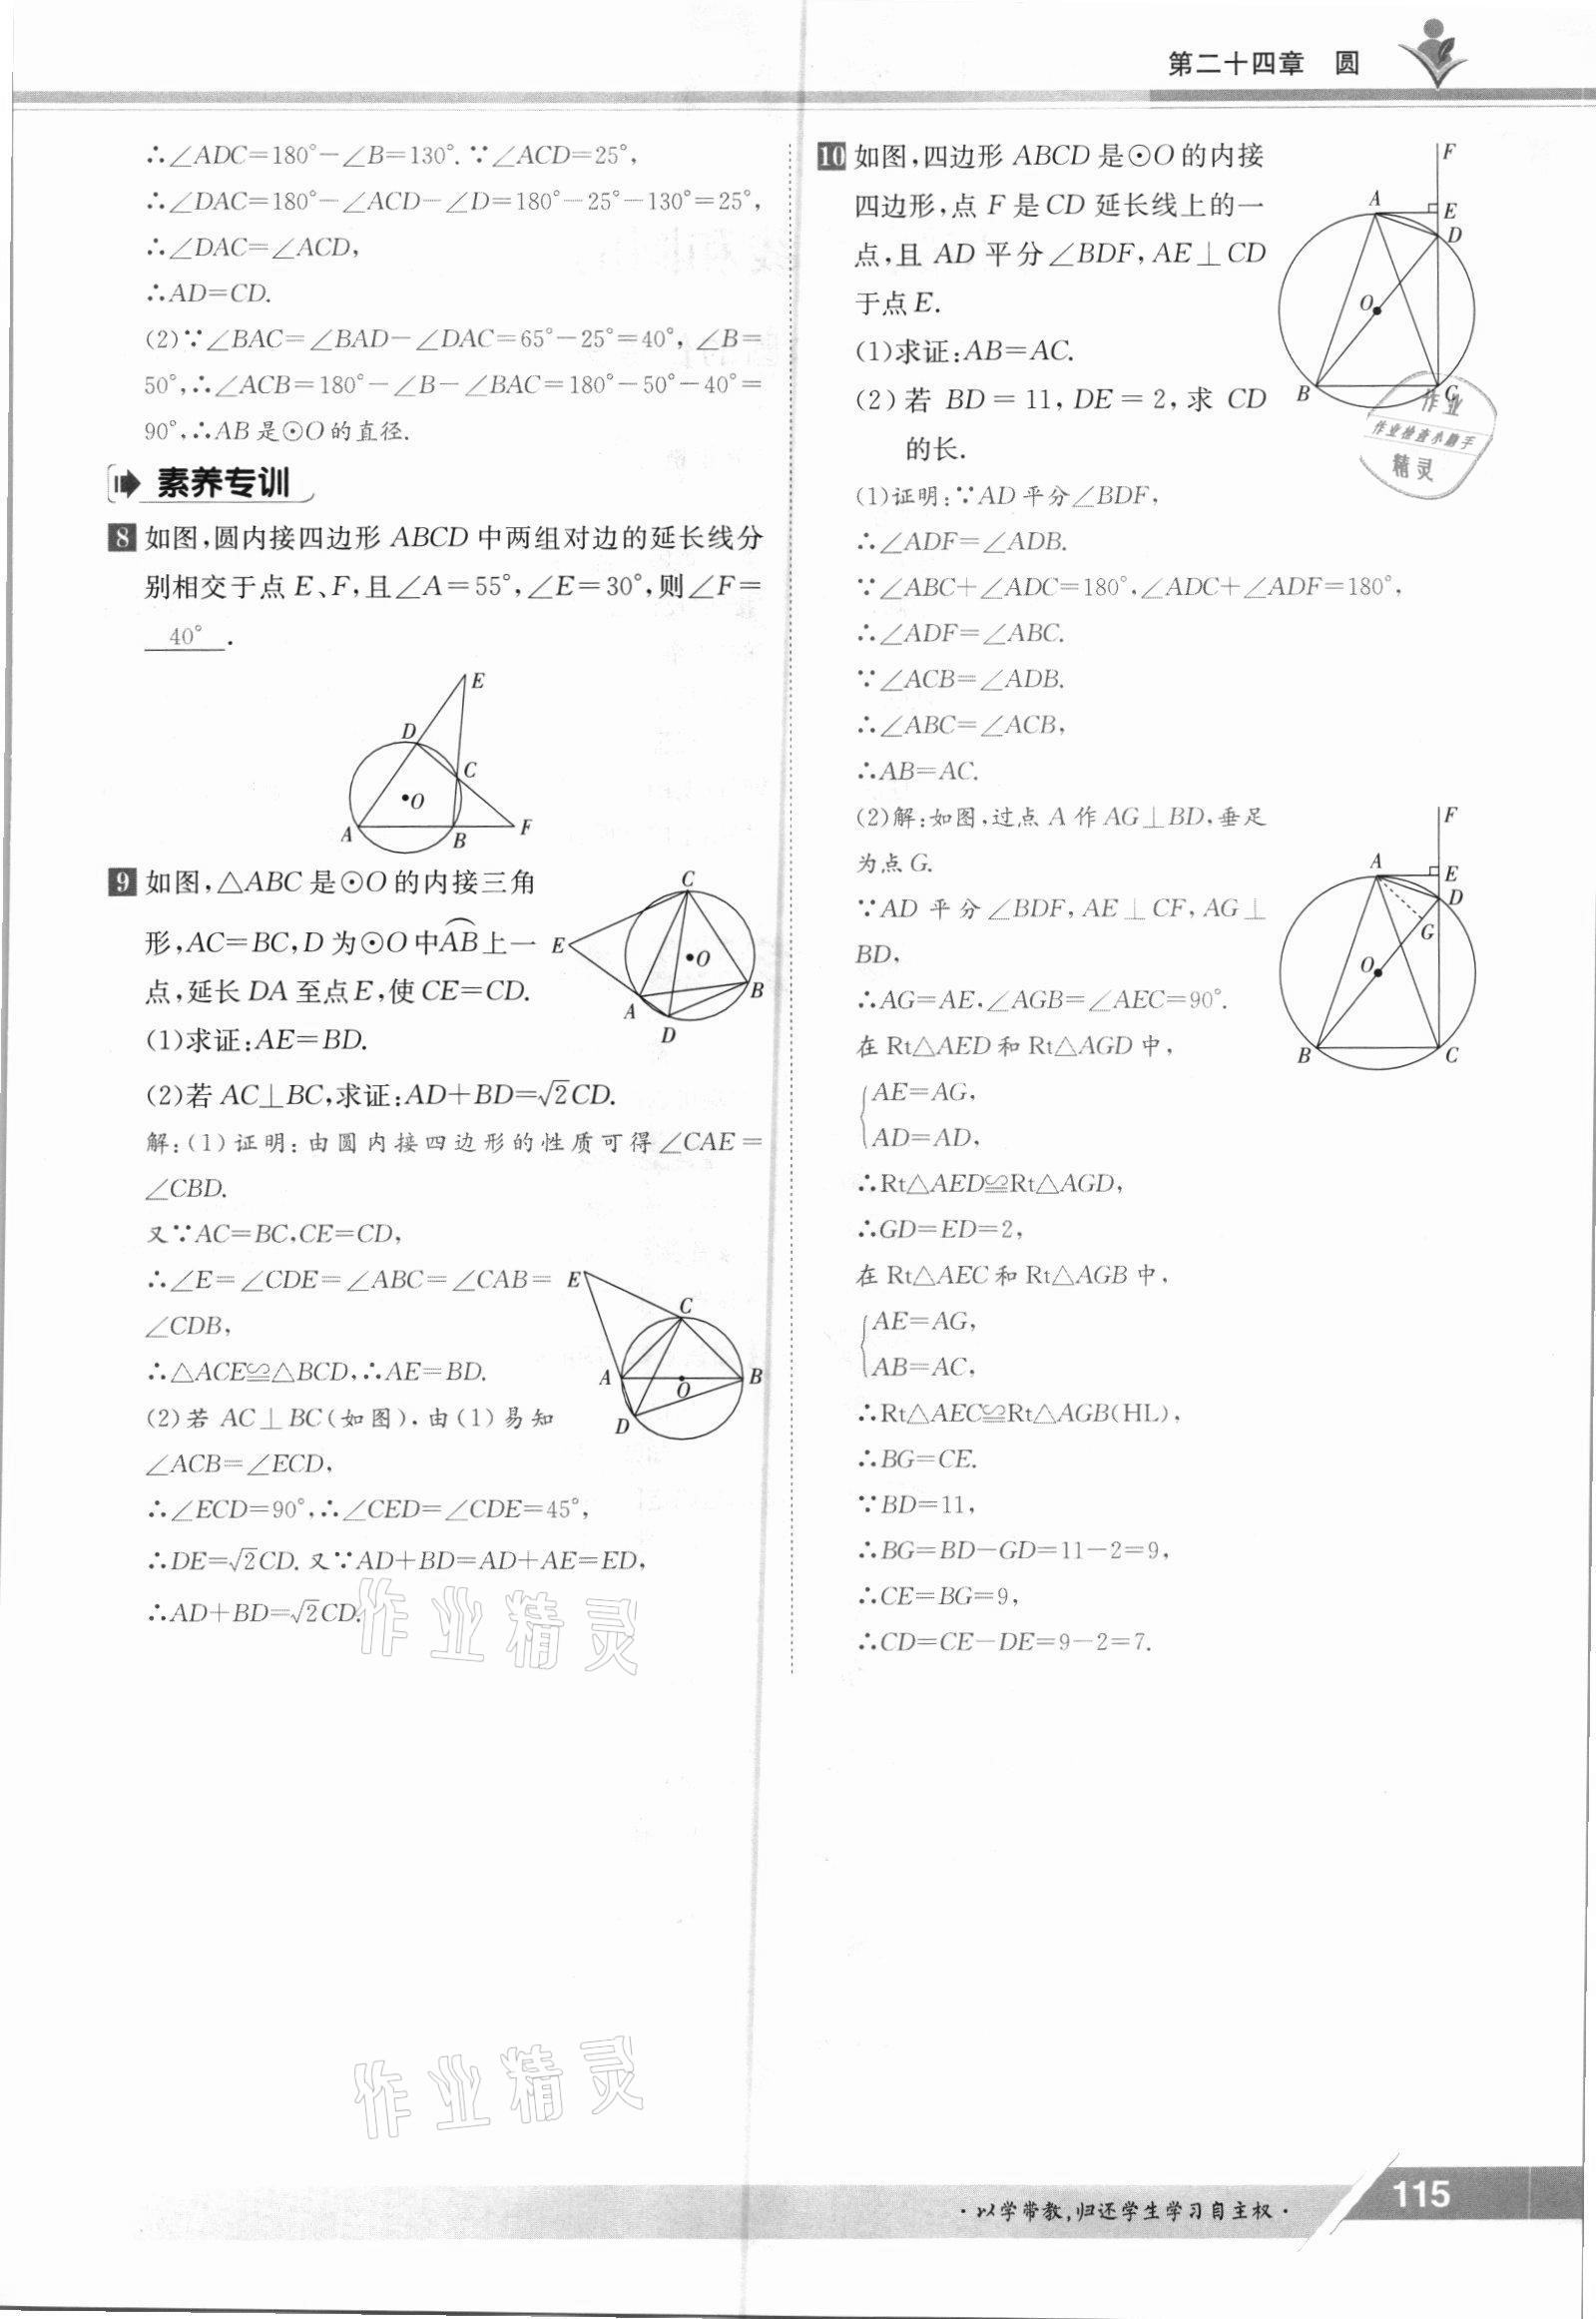 第二十四章 圆
∴∠ADC=180°-∠B=130°.∵∠ACD=25°,
∴∠DAC=180°-∠ACD-∠D=180°-25°-130°=25°,
∴∠DAC=∠ACD,
∴AD=CD.
(2)∵∠BAC=∠BAD-∠DAC=65°-25°=40°,∠B=
50°,∴∠ACB=180°-∠B-∠BAC=180°-50°-40°=
90°,∴AB是⊙O的直径.
素养专训
8 如图,圆内接四边形ABCD中两组对边的延长线分
别相交于点E、F,且∠A=55°,∠E=30°,则∠F=
40° .
E
D
C
O
A
B
F
9 如图,△ABC是⊙O的内接三角
形,AC=BC,D为⊙O中AB上一
点,延长DA至点E,使CE=CD.
(1)求证:AE=BD.
(2)若AC⊥BC,求证:AD+BD=√2CD.
C
E
O
B
A
D
解:(1)证明:由圆内接四边形的性质可得∠CAE=
∠CBD.
又∵AC=BC,CE=CD,
∴∠E=∠CDE=∠ABC=∠CAB=
∠CDB,
∴△ACE≌△BCD,∴AE=BD.
(2)若AC⊥BC(如图),由(1)易知
∠ACB=∠ECD,
∴∠ECD=90°,∴∠CED=∠CDE=45°,
∴DE=√2CD.又∵AD+BD=AD+AE=ED,
∴AD+BD=√2CD.
E
C
A
O
B
D
10 如图,四边形ABCD是⊙O的内接
四边形,点F是CD延长线上的一
点,且AD平分∠BDF,AE⊥CD
于点E.
(1)求证:AB=AC.
(2)若BD=11,DE=2,求CD
的长.
F
A
E
D
O
B
C
作业
作业检查小助手
精灵
(1)证明:∵AD平分∠BDF,
∴∠ADF=∠ADB.
∵∠ABC+∠ADC=180°,∠ADC+∠ADF=180°,
∴∠ADF=∠ABC.
∵∠ACB=∠ADB.
∴∠ABC=∠ACB,
∴AB=AC.
(2)解:如图,过点A作AG⊥BD,垂足
为点G.
∵AD平分∠BDF,AE⊥CF,AG⊥
BD,
∴AG=AE,∠AGB=∠AEC=90°.
在Rt△AED和Rt△AGD中,
AE=AG,
AD=AD,
∴Rt△AED≌Rt△AGD,
∴GD=ED=2,
在Rt△AEC和Rt△AGB中,
AE=AG,
AB=AC,
∴Rt△AEC≌Rt△AGB(HL),
∴BG=CE.
∵BD=11,
∴BG=BD-GD=11-2=9,
∴CE=BG=9,
∴CD=CE-DE=9-2=7.
F
A
E
D
G
O
B
C
作业精灵
作业精灵
·以学带教,归还学生学习自主权·
115